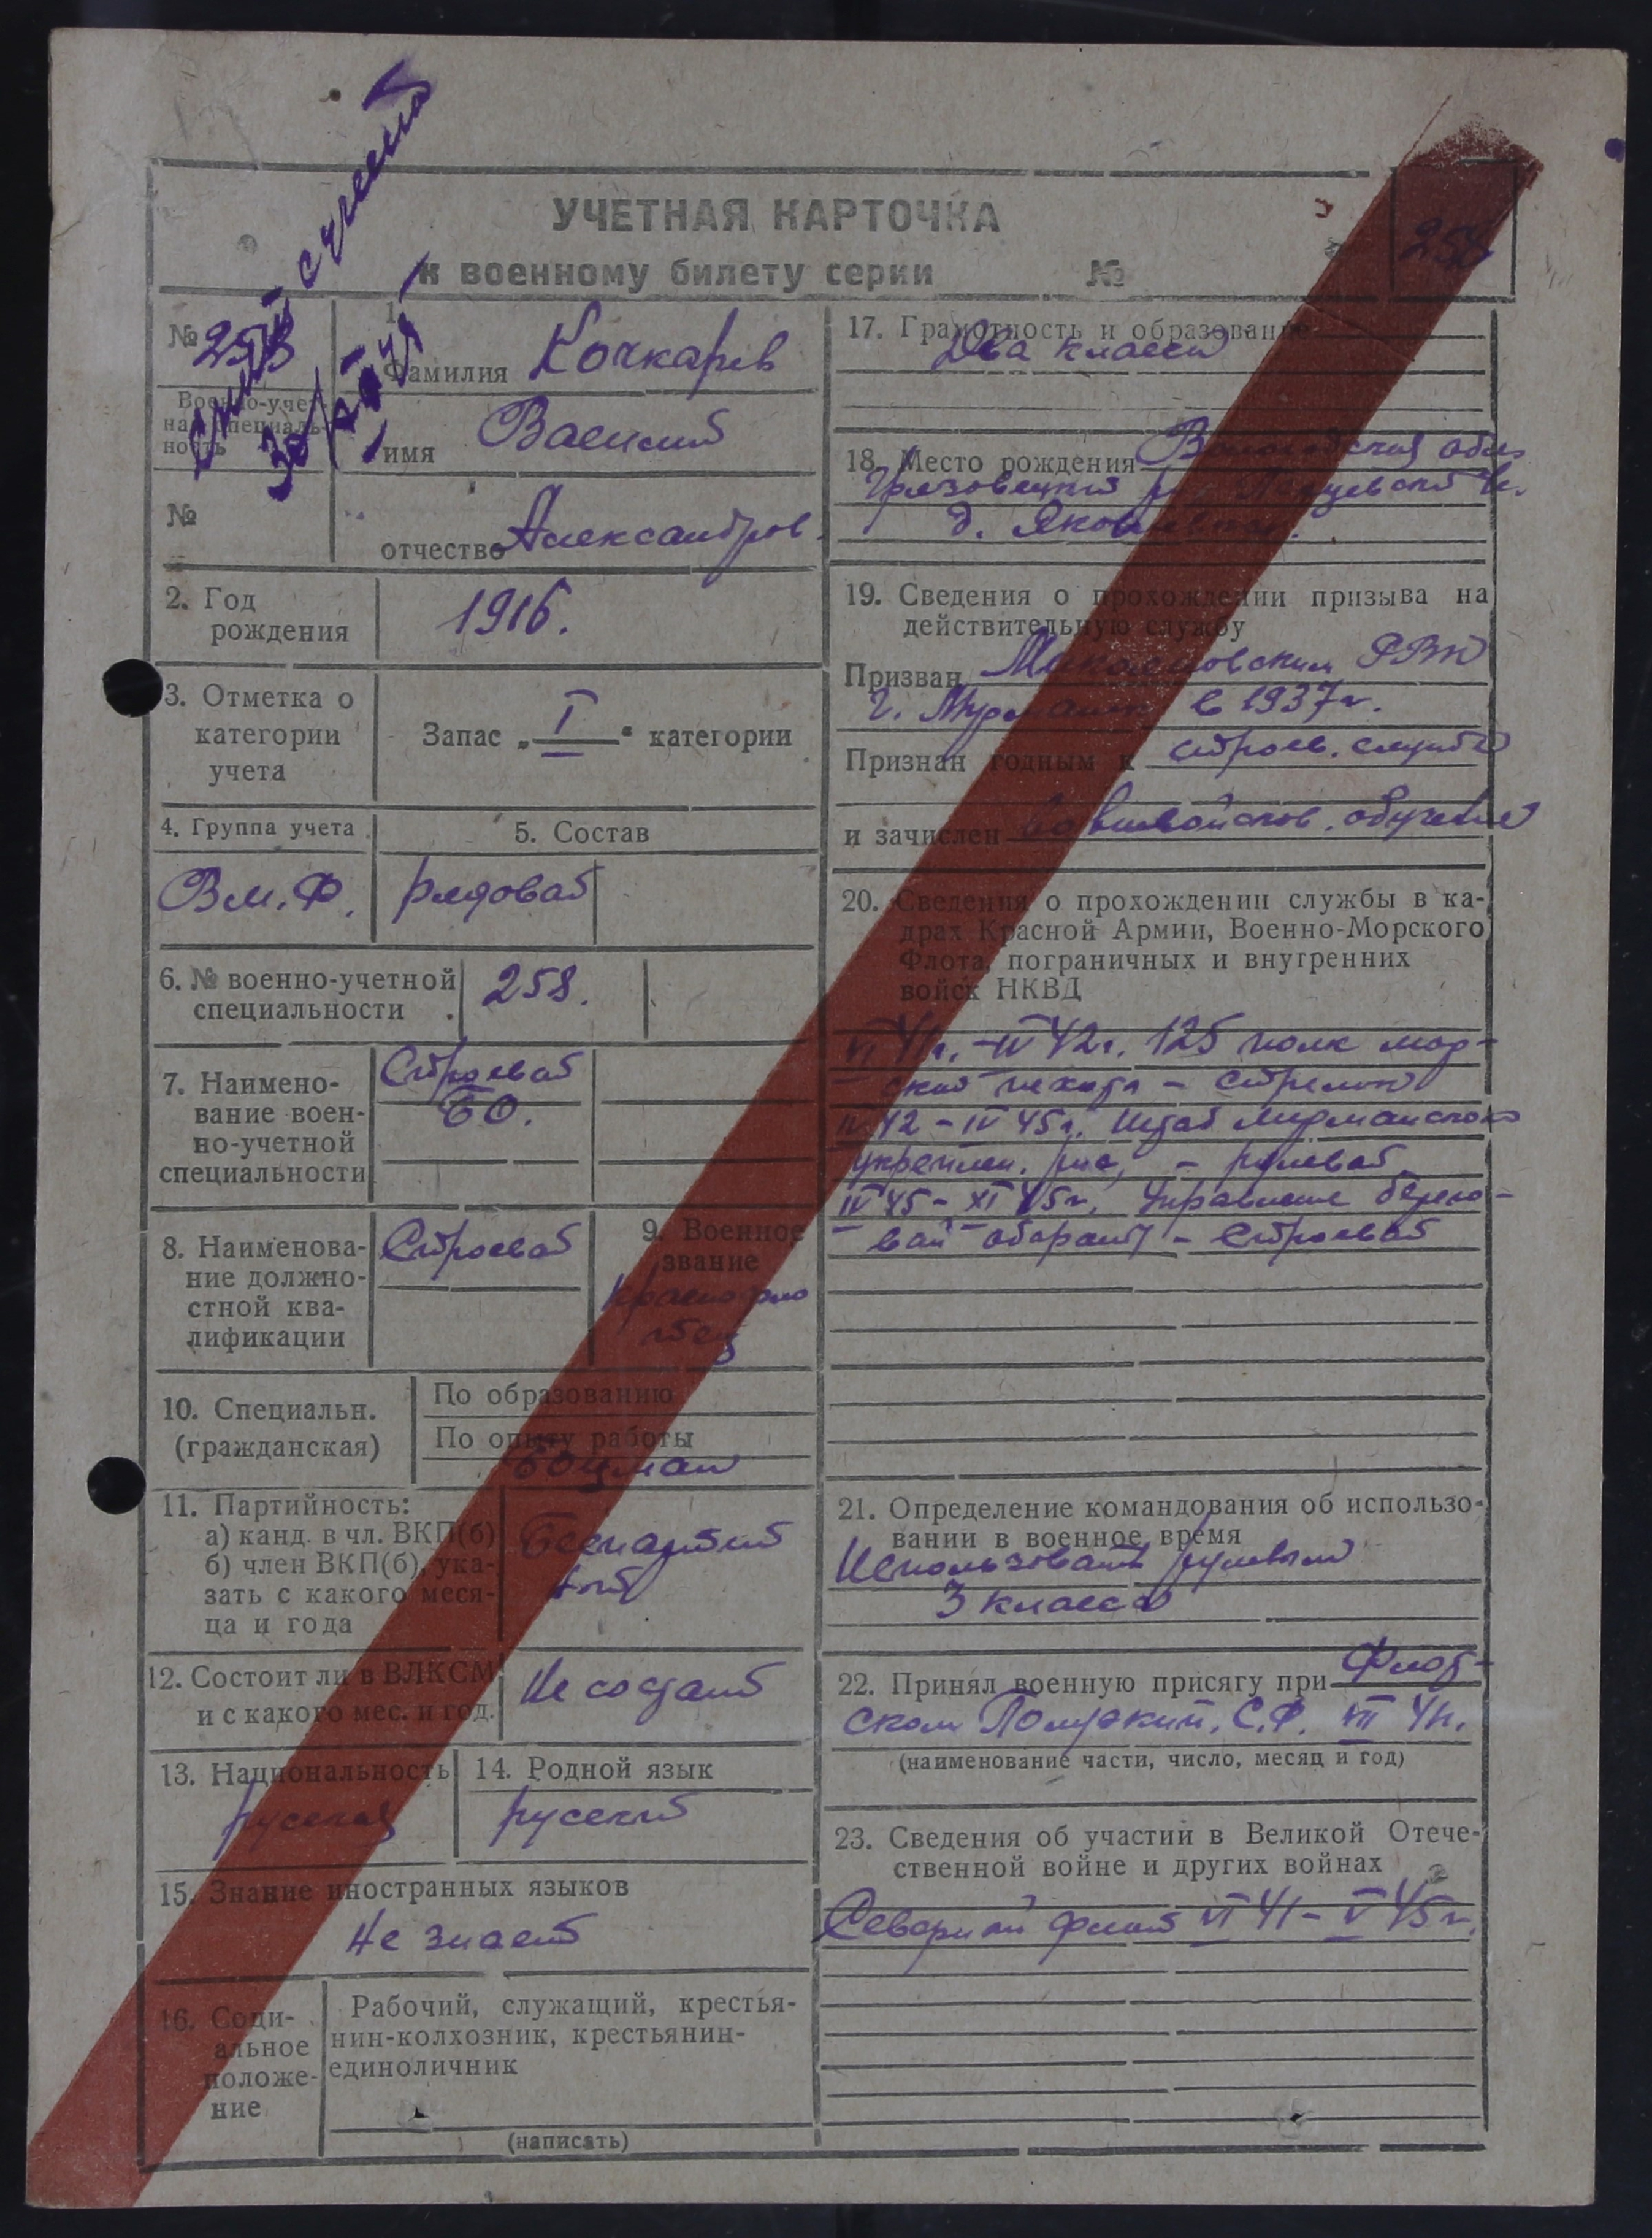 снят с учета
УЧЕТНАЯ КАРТОЧКА
к военному билету серии №
258
№ 258
Военно-учетная специальность
№
1.
Фамилия Кочкарев
имя Василий
отчество Александров.
2. Год
рождения
1916.
3. Отметка о
категории
учета
Запас „I“ категории
4. Группа учета
5. Состав
В.м.Ф.
рядовой
6. № военно-учетной
специальности
258.
7. Наимено-
вание воен-
но-учетной
специальности
Строевой
БО.
8. Наименова-
ние должно-
стной ква-
лификации
Строевой
9. Военное
звание
Краснофло
тец
10. Специальн.
(гражданская)
По образованию
По опыту работы
боцман
11. Партийность:
а) канд. в чл. ВКП(б)
б) член ВКП(б), ука-
зать с какого меся-
ца и года
Беспартий
ный
12. Состоит ли в ВЛКСМ
и с какого мес. и год.
Не состоит
13. Национальность
русский
14. Родной язык
русский
15. Знание иностранных языков
Не знает
16. Соци-
альное
положе-
ние
Рабочий, служащий, крестья-
нин-колхозник, крестьянин-
единоличник
(написать)
17. Грамотность и образование
Два класса
18. Место рождения Вологодская обл.
Грязовецкий
д.
19. Сведения о прохождении призыва на
действительную службу
Призван РВК
г. Мурманск в 1937г.
Признан годным к строев. службе
и зачислен обучение
20. Сведения о прохождении службы в ка-
драх Красной Армии, Военно-Морского
Флота, пограничных и внутренних
войск НКВД
VI 41г. - IV 42г. 125 полк мор-
ской пехоты - стрелок
IV 42 - IV 45г. Штаб Мурманского
укреплен. - рулевой
IV 45 - XI 45г. Управление берего-
вой обороны - Строевой
21. Определение командования об использо-
вании в военное время
Использовать рулевым
3 класса
22. Принял военную присягу при Флот-
ском Полуэкип. С.Ф. VII 41г.
(наименование части, число, месяц и год)
23. Сведения об участии в Великой Отече-
ственной войне и других войнах
Северный флот VI 41 - V 45г.